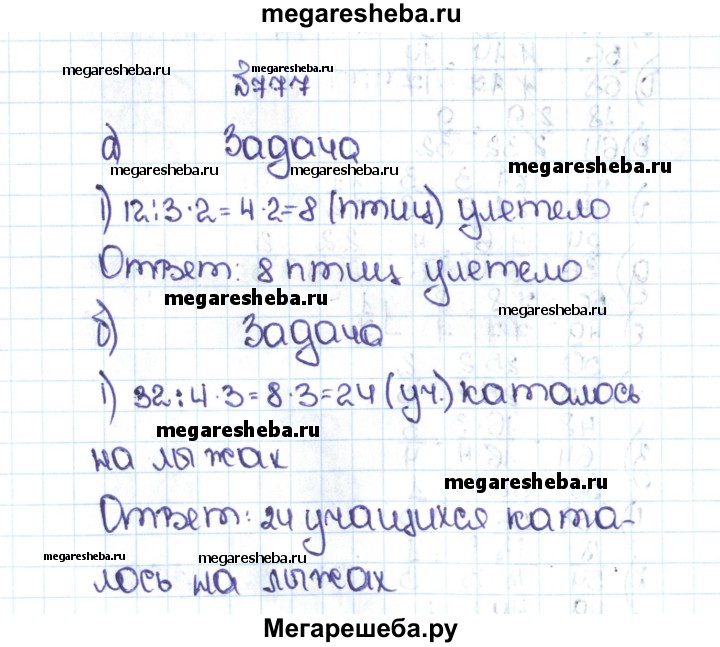 megaresheba.ru
megaresheba.ru
megaresheba.ru
№777
а) Задача
megaresheba.ru megaresheba.ru megaresheba.ru
1) 12:3·2=4·2=8 (птиц) улетело
Ответ: 8 птиц улетело
megaresheba.ru
megaresheba.ru
б) Задача
1) 32:4·3=8·3=24 (уч.) каталось
megaresheba.ru
на лыжах
megaresheba.ru
Ответ: 24 учащихся ката-
megaresheba.ru megaresheba.ru
лось на лыжах
Мегарешеба.ру